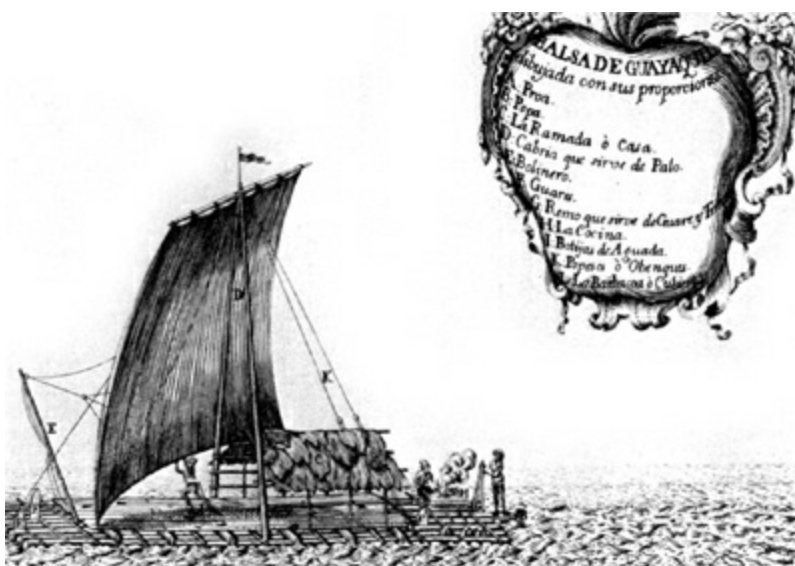 BALSA DE GUAYAQ
dibujada con sus proporcion
A. Proa.
B. Popa.
C. La Ramada ò Casa.
D. Cabria que sirve de Palo.
E. Bolinero.
Guaru.
G. Remo que sirve de Guare y
H. La Cocina.
I. Botijas de Aguada.
K. ò Obenques
La ò
D
K
E